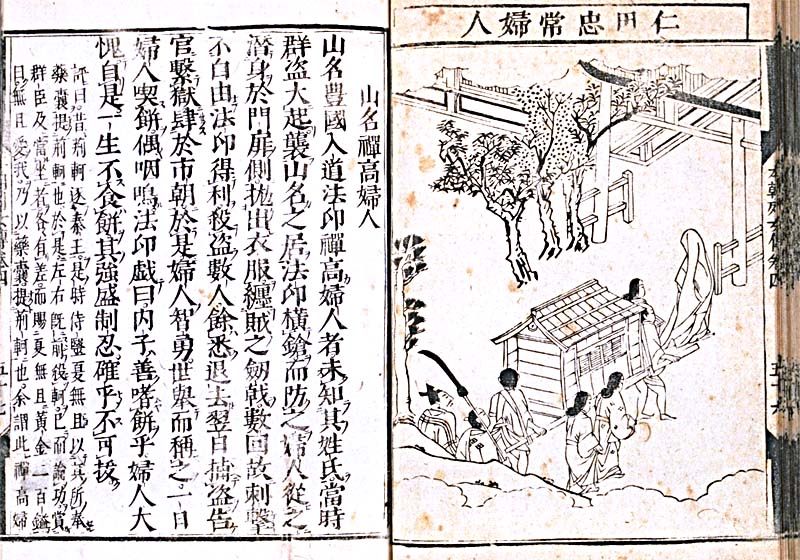 仁田忠常婦人
五十六
山名禪高婦人
山名豐國入道法印禪高婦人者未知其姓氏當時
群盜大起襲山名之居法印橫鎗而防之婦人從之
潛身於門扉側拋出衣服纒賊之劔戟數回故刺擊
不自由法印得利殺盜數人餘悉退去翌日捕盜告
官繫獄肆於市朝於是婦人智勇世擧而稱之一日
婦人喫餅偶咽嗚法印戲曰内子善嗜餅乎婦人大
愧自是一生不食餅其強盛制忍確乎不可拔
評曰昔荊軻逐秦王是時侍醫夏無且以其所奉
藥囊提荊軻也於是左右旣前殺軻已而論功賞
群臣及當坐者各有差而賜夏無且黃金二百鎰
曰無且愛我乃以藥囊提荊軻也余謂此禪高婦